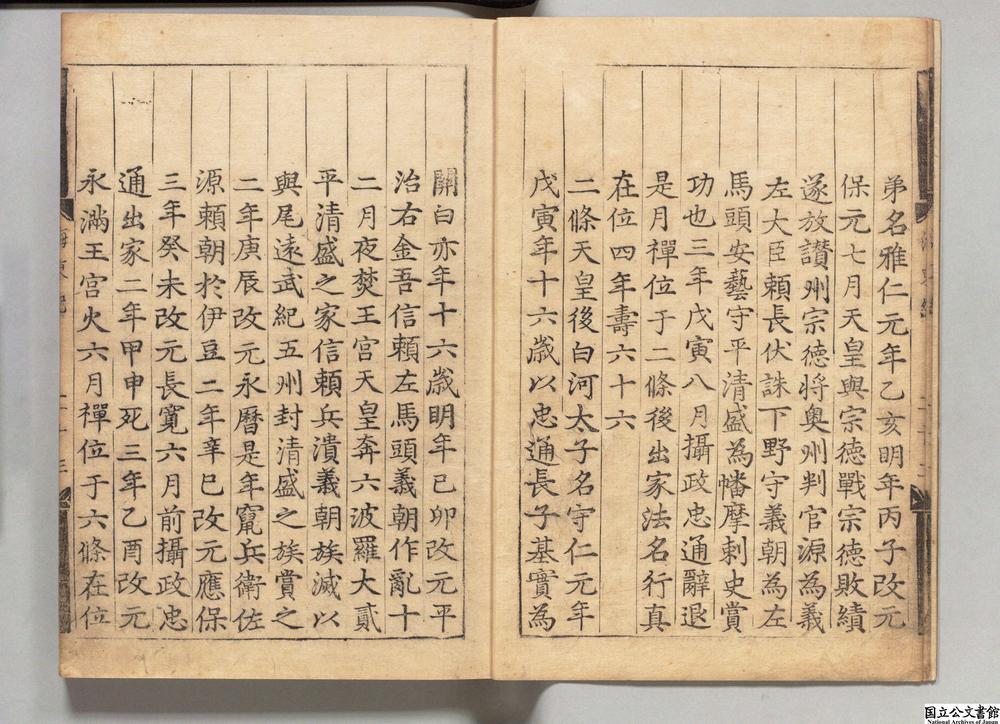 弟名雅仁元年乙亥明年丙子改元
保元七月天皇與宗德戰宗德敗績
遂放讃州宗德將奥州判官源為義
左大臣賴長伏誅下野守義朝為左
馬頭安藝守平清盛為幡摩刺史賞
功也三年戊寅八月攝政忠通辭退
是月禪位于二條後出家法名行真
在位四年壽六十六
二條天皇後白河太子名守仁元年
戊寅年十六歲以忠通長子基實為
關白亦年十六歲明年己卯改元平
治右金吾信賴左馬頭義朝作亂十
二月夜焚王宮天皇奔六波羅大貳
平清盛之家信賴兵潰義朝族滅以
與尾遠武紀五州封清盛之族賞之
二年庚辰改元永曆是年竄兵衛佐
源賴朝於伊豆二年辛巳改元應保
三年癸未改元長寬六月前攝政忠
通出家二年甲申死三年乙酉改元
永滿王宮火六月禪位于六條在位
海東紀
二十三
国立公文書館
National Archives of Japan